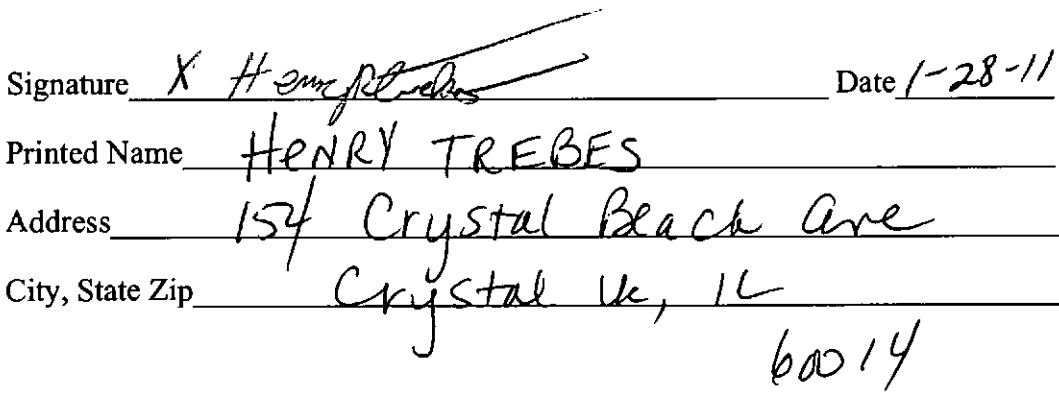 Signature X Henry Trebes Date 1-28-11
Printed Name HENRY TREBES
Address 154 Crystal Beach Ave
City, State Zip Crystal Lk, IL
60014